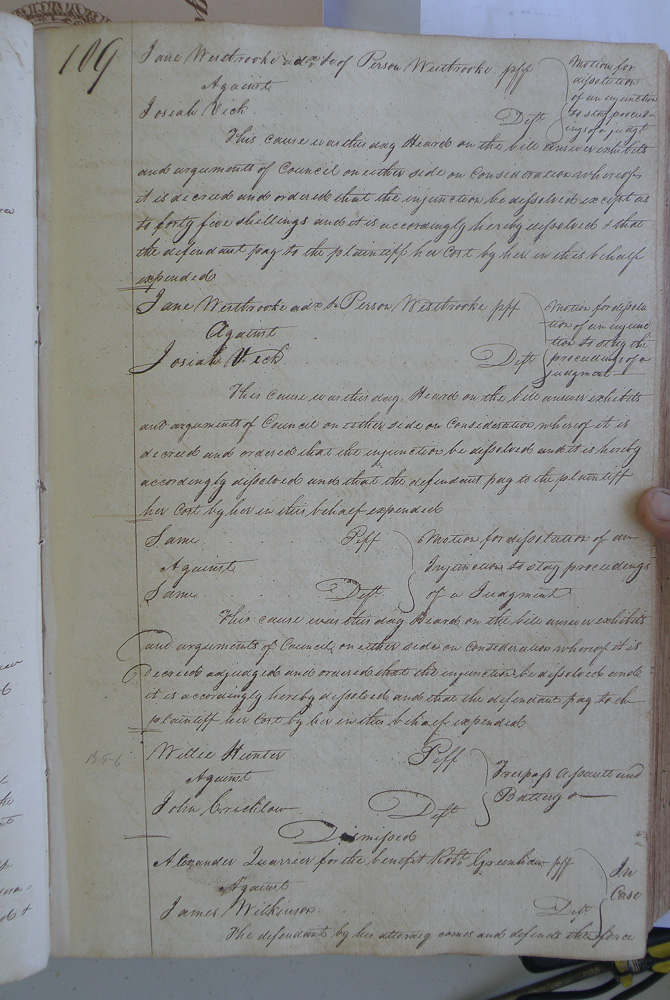 109
Jane Westbrooke adx &c of Person Westbrooke pff
Against
Josiah Vick Deft
Motion for
dissolution
of an injunction
to stay proceed-
ings of a judgt
This cause was this day Heard on the bill answer exhibits
and arguments of Council on either side on Consideration whereof
it is decreed and ordered that the injunction be dissolved except as
to forty five shillings and it is accordingly hereby dissolved & that
the defendant pay to the plaintiff her Cost by her in this behalf
expended
Jane Westbrooke adx &c Person Westbrooke pff
Against
Josiah Vick Deft
Motion for dissolu
tion of an injunc
tion to stay the
proceedings of a
judgment
This cause was this day Heard on the bill answer exhibits
and arguments of Council on either side on Consideration whereof it is
decreed and ordered that the injunction be dissolved and it is hereby
accordingly dissolved and that the defendant pay to the plaintiff
her Cost by her in this behalf expended
Same Plff
Against
Same Deft
Motion for dissolution of an
Injunction to stay proceedings
of a Judgment
This cause was this day Heard on the bill answer exhibits
and arguments of Council on either side on Consideration whereof it is
decreed adjudged and ordered that the injunction be dissolved and
it is accordingly hereby dissolved and that the defendant pay to the
plaintiff her Cost by her in this behalf expended
Willie Hunter Plff
Against
John Cricklow Deft
Trespass Assault and
Battery
Dismissed
Alexander Quarrier for the benefit Robt. Greenhow pff
Against
James Wilkinson Deft
In
Case
The defendant by his attorney comes and defends the force